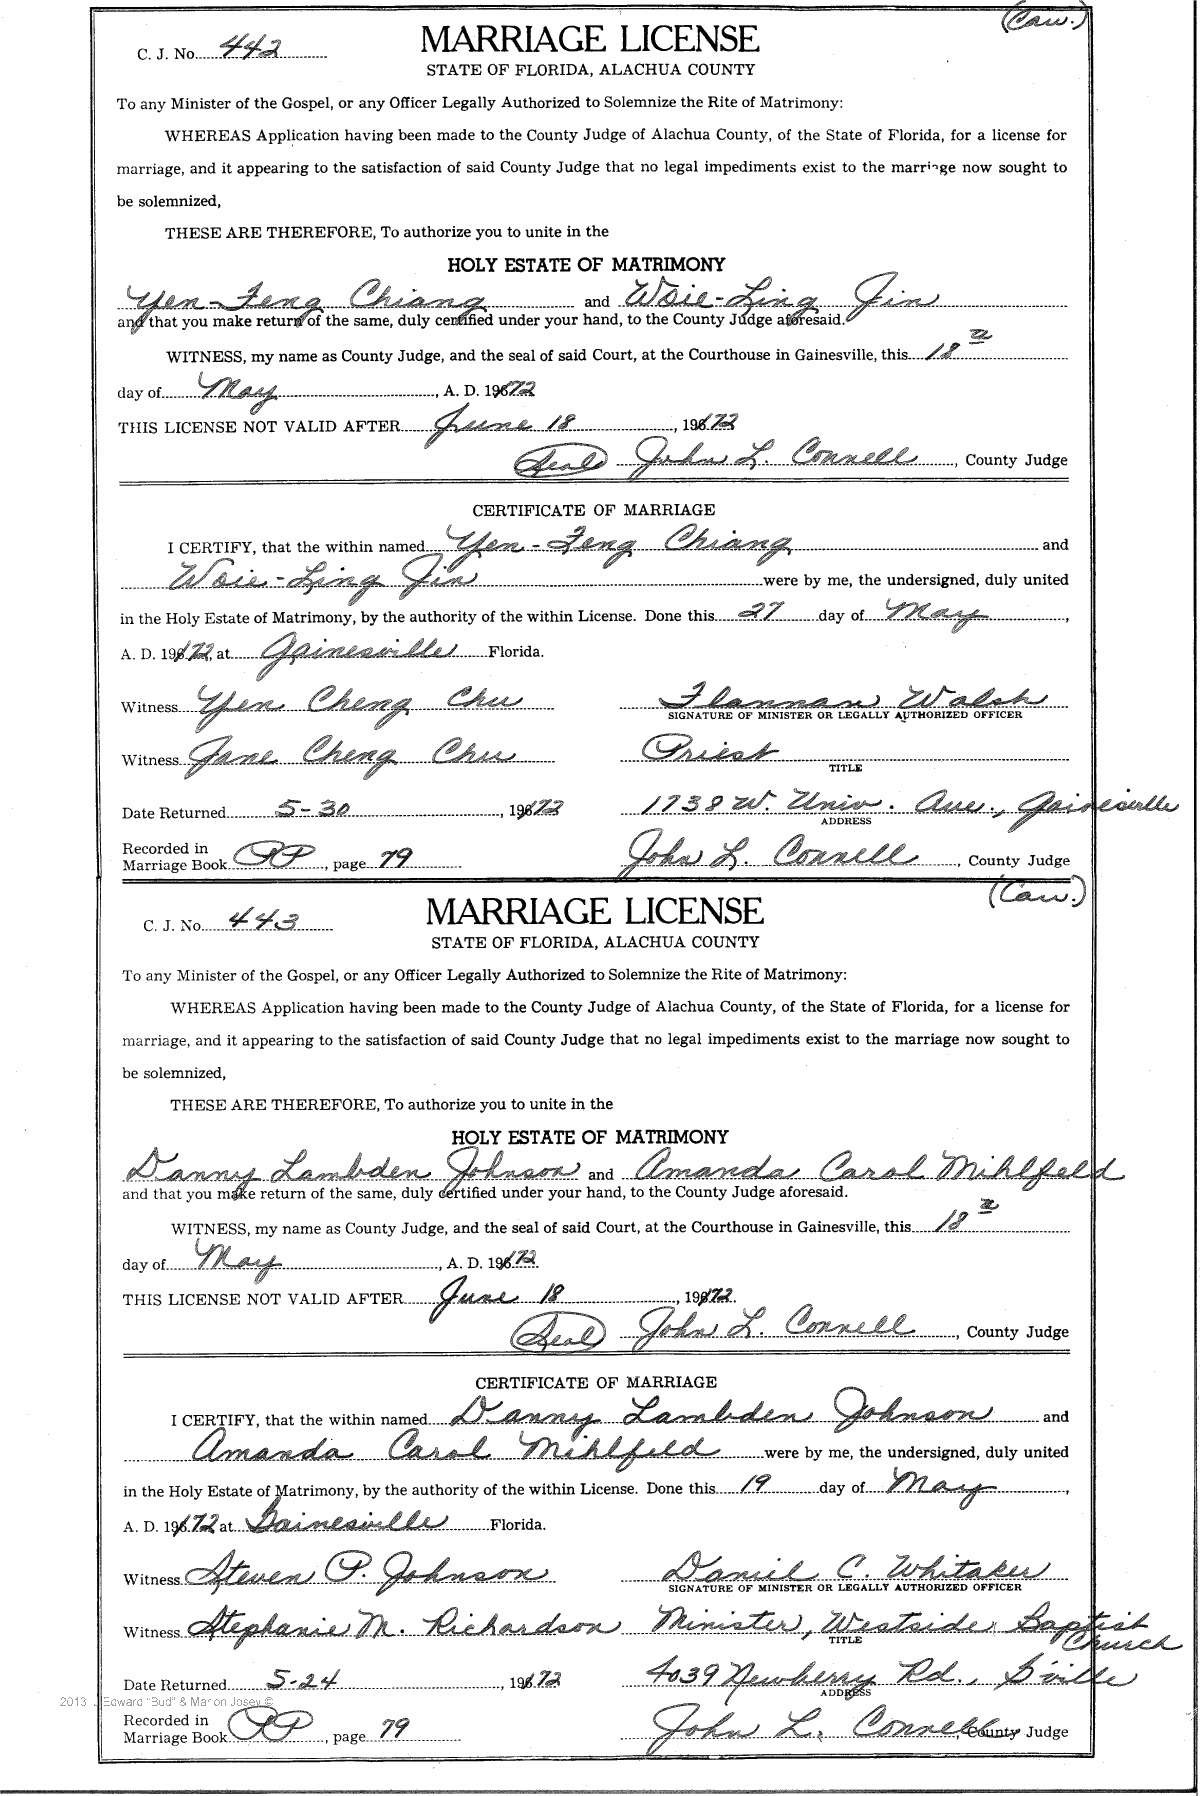 (Cau.)
C. J. No. 442
MARRIAGE LICENSE
STATE OF FLORIDA, ALACHUA COUNTY
To any Minister of the Gospel, or any Officer Legally Authorized to Solemnize the Rite of Matrimony:
WHEREAS Application having been made to the County Judge of Alachua County, of the State of Florida, for a license for
marriage, and it appearing to the satisfaction of said County Judge that no legal impediments exist to the marriage now sought to
be solemnized,
THESE ARE THEREFORE, To authorize you to unite in the
HOLY ESTATE OF MATRIMONY
Yen-Feng Chiang and Woie-Ling Jin
and that you make return of the same, duly certified under your hand, to the County Judge aforesaid.
WITNESS, my name as County Judge, and the seal of said Court, at the Courthouse in Gainesville, this 18
day of May, A. D. 1972
THIS LICENSE NOT VALID AFTER June 18, 1972
(Seal) John L. Connell, County Judge
CERTIFICATE OF MARRIAGE
I CERTIFY, that the within named Yen-Feng Chiang and
Woie-Ling Jin were by me, the undersigned, duly united
in the Holy Estate of Matrimony, by the authority of the within License. Done this 27 day of May,
A. D. 1972, at Gainesville Florida.
Witness Yen Cheng Chu Flannan Walsh
SIGNATURE OF MINISTER OR LEGALLY AUTHORIZED OFFICER
Witness Jane Cheng Chu Priest
TITLE
Date Returned 5-30, 1972 1738 W. Univ. Ave., Gainesville
ADDRESS
Recorded in
Marriage Book PP, page 79 John L. Connell, County Judge
(Cau.)
C. J. No. 443
MARRIAGE LICENSE
STATE OF FLORIDA, ALACHUA COUNTY
To any Minister of the Gospel, or any Officer Legally Authorized to Solemnize the Rite of Matrimony:
WHEREAS Application having been made to the County Judge of Alachua County, of the State of Florida, for a license for
marriage, and it appearing to the satisfaction of said County Judge that no legal impediments exist to the marriage now sought to
be solemnized,
THESE ARE THEREFORE, To authorize you to unite in the
HOLY ESTATE OF MATRIMONY
Danny Lambden Johnson and Amanda Carol Mihlfeld
and that you make return of the same, duly certified under your hand, to the County Judge aforesaid.
WITNESS, my name as County Judge, and the seal of said Court, at the Courthouse in Gainesville, this 18
day of May, A. D. 1972
THIS LICENSE NOT VALID AFTER June 18, 1972
(Seal) John L. Connell, County Judge
CERTIFICATE OF MARRIAGE
I CERTIFY, that the within named Danny Lambden Johnson and
Amanda Carol Mihlfeld were by me, the undersigned, duly united
in the Holy Estate of Matrimony, by the authority of the within License. Done this 19 day of May,
A. D. 1972 at Gainesville Florida.
Witness Steven P. Johnson Daniel C. Whitaker
SIGNATURE OF MINISTER OR LEGALLY AUTHORIZED OFFICER
Witness Stephanie M. Richardson Minister, Westside Baptist Church
TITLE
Date Returned 5-24, 1972 4039 Newberry Rd., G'ville
ADDRESS
2013 J Edward "Bud" & Marion Josey ©
Recorded in
Marriage Book PP, page 79 John L. Connell, County Judge